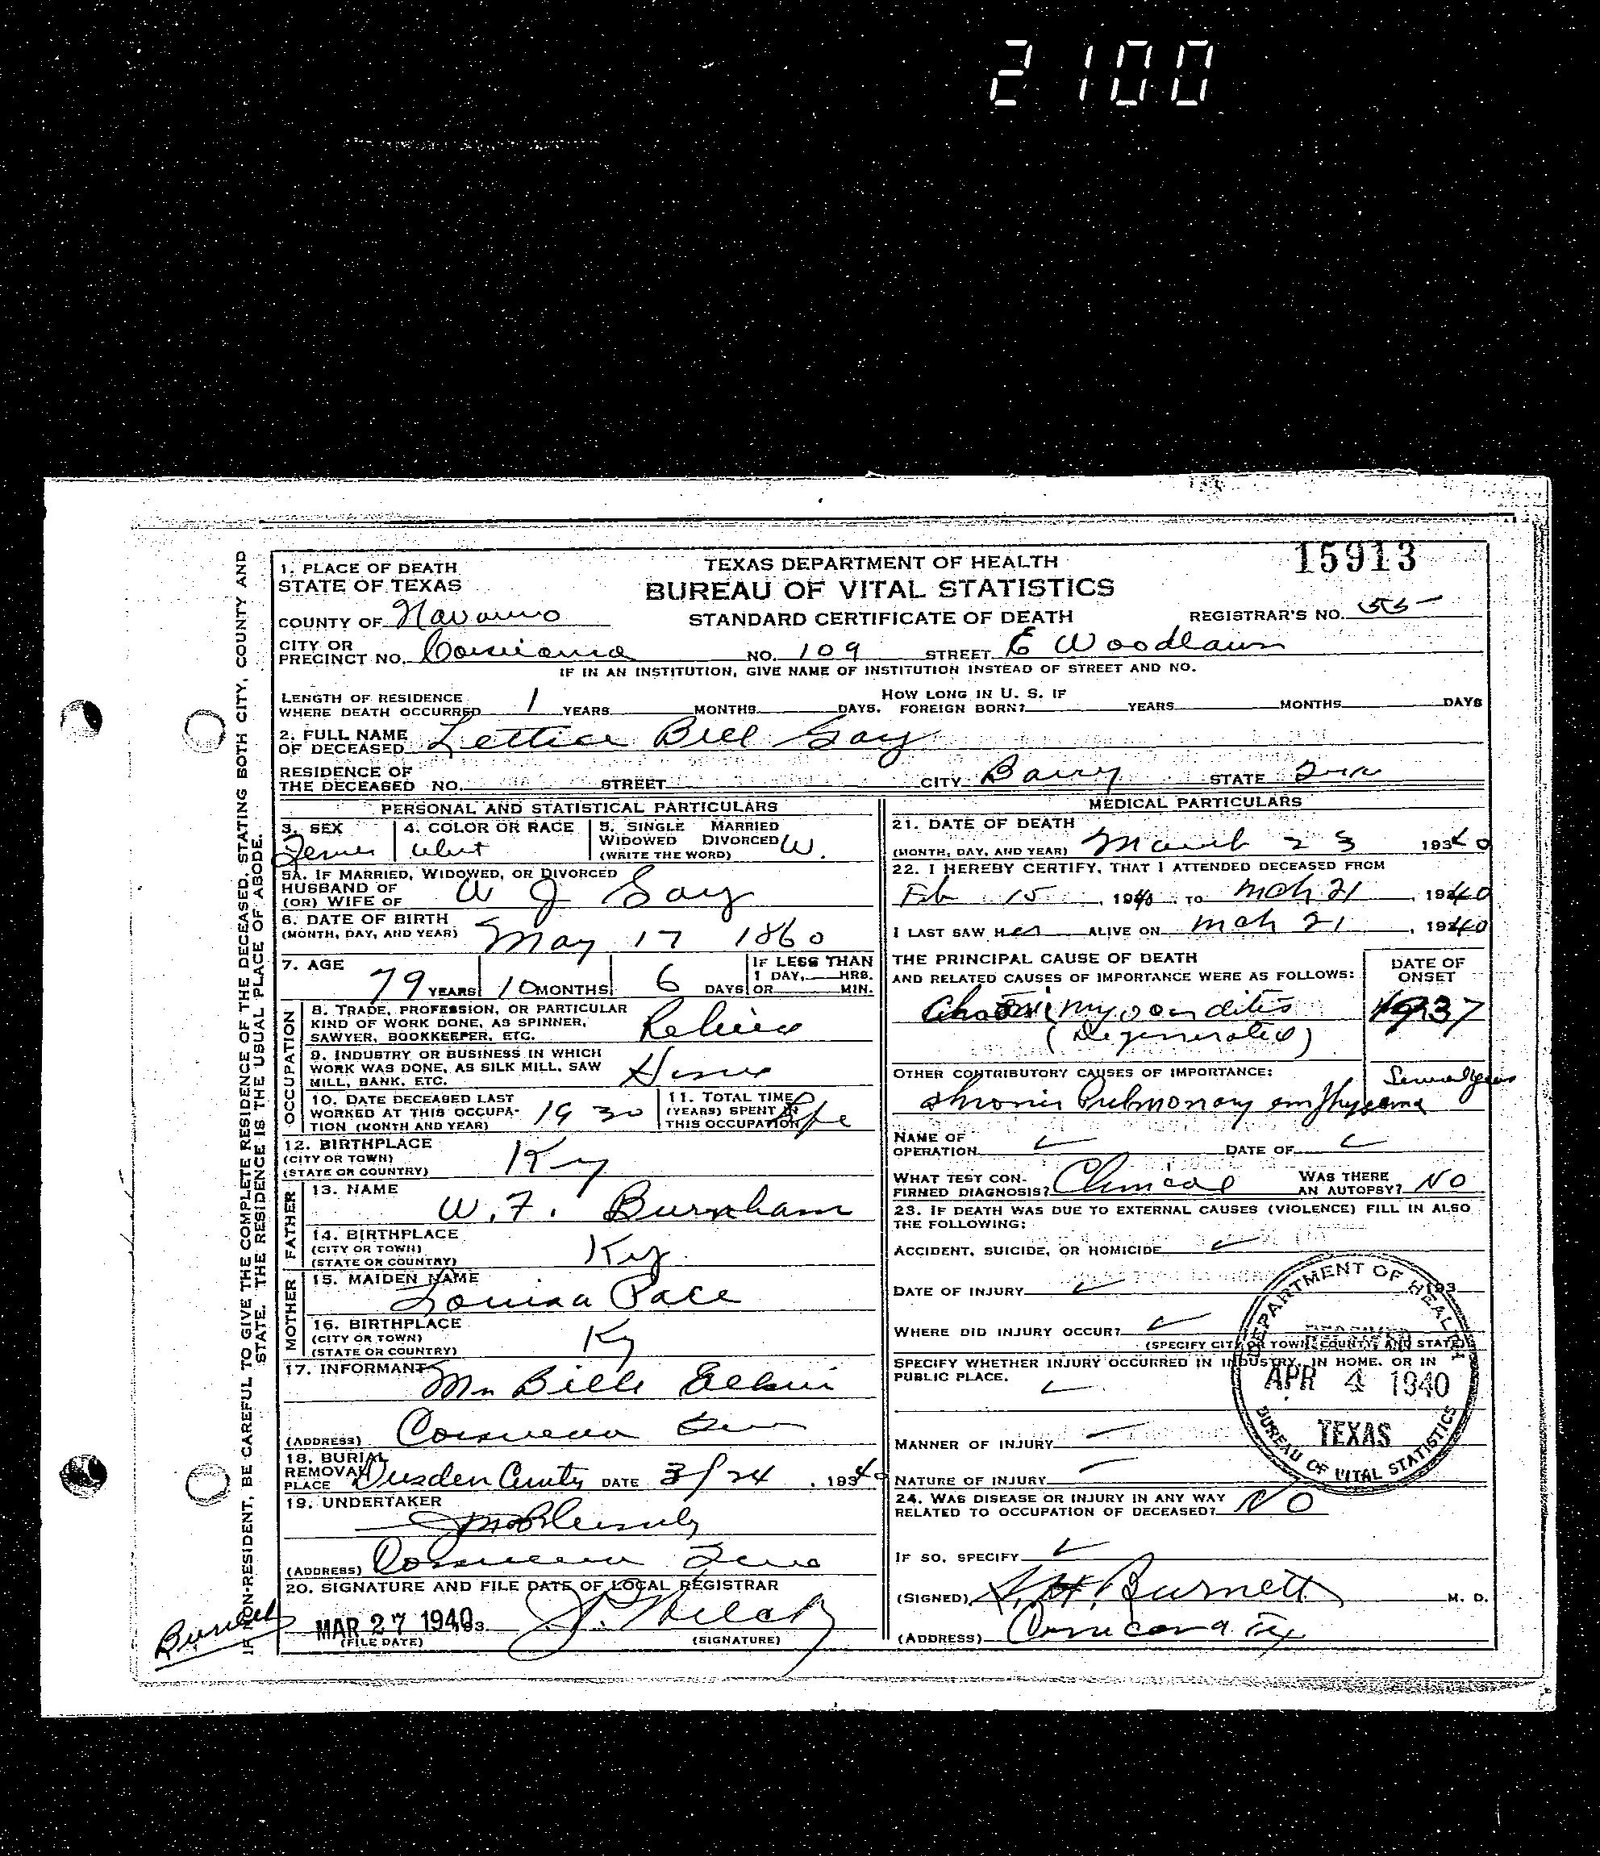 2 100
15913
1. PLACE OF DEATH
STATE OF TEXAS
TEXAS DEPARTMENT OF HEALTH
BUREAU OF VITAL STATISTICS
STANDARD CERTIFICATE OF DEATH
COUNTY OF Navarro
REGISTRAR'S NO. 55
CITY OR PRECINCT NO. Corsicana NO. 109 STREET E Woodlawn
IF IN AN INSTITUTION, GIVE NAME OF INSTITUTION INSTEAD OF STREET AND NO.
LENGTH OF RESIDENCE WHERE DEATH OCCURRED 1 YEARS MONTHS DAYS. HOW LONG IN U. S. IF FOREIGN BORN? YEARS MONTHS DAYS
2. FULL NAME OF DECEASED Lettice Bell Gay
RESIDENCE OF THE DECEASED NO. STREET CITY Barry STATE
PERSONAL AND STATISTICAL PARTICULARS
3. SEX
4. COLOR OR RACE
5. SINGLE MARRIED WIDOWED DIVORCED (WRITE THE WORD) W.
5A. IF MARRIED, WIDOWED, OR DIVORCED
HUSBAND OF (OR) WIFE OF W J Gay
6. DATE OF BIRTH (MONTH, DAY, AND YEAR) May 17 1860
7. AGE 79 YEARS 10 MONTHS 6 DAYS IF LESS THAN 1 DAY, HRS. OR MIN.
OCCUPATION
8. TRADE, PROFESSION, OR PARTICULAR KIND OF WORK DONE, AS SPINNER, SAWYER, BOOKKEEPER, ETC.
9. INDUSTRY OR BUSINESS IN WHICH WORK WAS DONE, AS SILK MILL, SAW MILL, BANK, ETC.
10. DATE DECEASED LAST WORKED AT THIS OCCUPATION (MONTH AND YEAR) 1930
11. TOTAL TIME (YEARS) SPENT IN THIS OCCUPATION Life
12. BIRTHPLACE (CITY OR TOWN) (STATE OR COUNTRY) Ky
FATHER
13. NAME W. F. Burnham
14. BIRTHPLACE (CITY OR TOWN) (STATE OR COUNTRY) Ky.
MOTHER
15. MAIDEN NAME Louisa Pace
16. BIRTHPLACE (CITY OR TOWN) (STATE OR COUNTRY) Ky
17. INFORMANT
(ADDRESS) Corsicana
18. BURIAL REMOVAL PLACE Dresden DATE 3/24, 1940
19. UNDERTAKER
(ADDRESS) Corsicana
20. SIGNATURE AND FILE DATE OF LOCAL REGISTRAR
MAR 27 1940
(FILE DATE) (SIGNATURE)
MEDICAL PARTICULARS
21. DATE OF DEATH (MONTH, DAY, AND YEAR) March 23 1940
22. I HEREBY CERTIFY, THAT I ATTENDED DECEASED FROM
Feb 15, 1940 TO Mch 21, 1940
I LAST SAW Her ALIVE ON Mch 21, 1940
THE PRINCIPAL CAUSE OF DEATH AND RELATED CAUSES OF IMPORTANCE WERE AS FOLLOWS:
DATE OF ONSET
Chronic Myocarditis 1937
(Degenerated)
OTHER CONTRIBUTORY CAUSES OF IMPORTANCE: Several years
Chronic Pulmonary emphysema
NAME OF OPERATION DATE OF
WHAT TEST CONFIRMED DIAGNOSIS? Clinical WAS THERE AN AUTOPSY? NO
23. IF DEATH WAS DUE TO EXTERNAL CAUSES (VIOLENCE) FILL IN ALSO THE FOLLOWING:
ACCIDENT, SUICIDE, OR HOMICIDE
DATE OF INJURY 193
WHERE DID INJURY OCCUR?
(SPECIFY CITY OR TOWN, COUNTY, AND STATE)
SPECIFY WHETHER INJURY OCCURRED IN INDUSTRY, IN HOME, OR IN PUBLIC PLACE.
MANNER OF INJURY
NATURE OF INJURY
24. WAS DISEASE OR INJURY IN ANY WAY RELATED TO OCCUPATION OF DECEASED? NO
IF SO, SPECIFY
(SIGNED) Burnett M. D.
(ADDRESS) Corsicana Tex
DEPARTMENT OF HEALTH
APR 4 1940
TEXAS
BUREAU OF VITAL STATISTICS
IF NON-RESIDENT, BE CAREFUL TO GIVE THE COMPLETE RESIDENCE OF THE DECEASED, STATING BOTH CITY, COUNTY AND
STATE. THE RESIDENCE IS THE USUAL PLACE OF ABODE.
Burnett